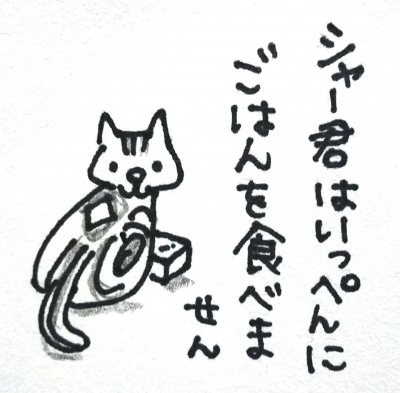 シャー君はいっぺんに
ごはんを食べま
せん